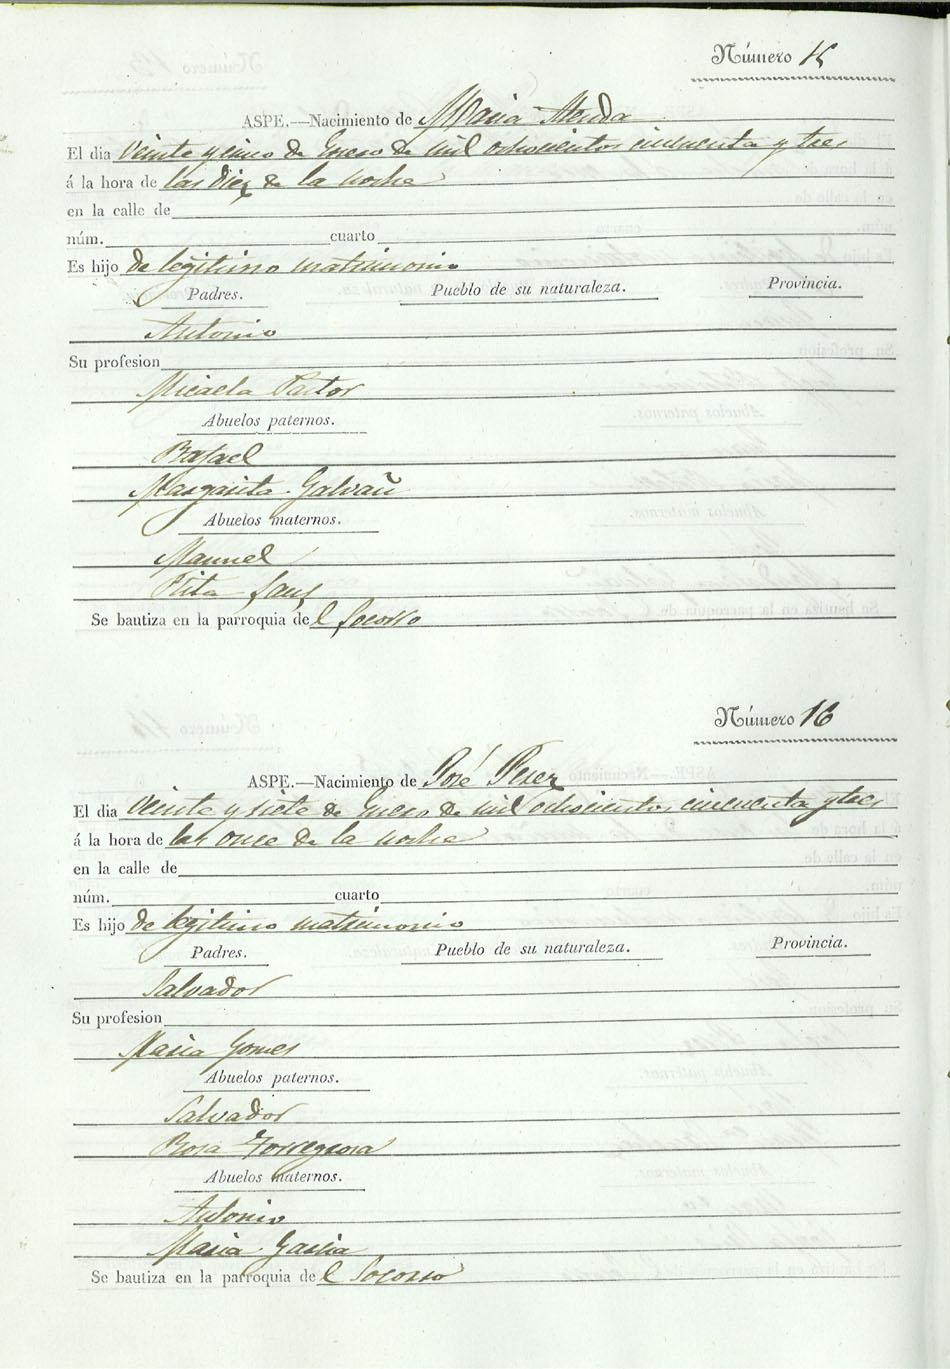 Número 15
ASPE.—Nacimiento de Maria Alenda
El dia veinte y cinco de Enero de mil ochocientos cincuenta y tres
á la hora de las diez de la noche
en la calle de
núm. cuarto
Es hijo de legitimo matrimonio
Padres. Pueblo de su naturaleza. Provincia.
Antonio
Su profesion
Micaela Pastor
Abuelos paternos.
Rafael
Margarita Galvañ
Abuelos maternos.
Manuel
Rita Sanz
Se bautiza en la parroquia del Socorro
Número 16
ASPE.—Nacimiento de José Perez
El dia veinte y siete de Enero de mil ochocientos cincuenta y tres
á la hora de las once de la noche
en la calle de
núm. cuarto
Es hijo de legitimo matrimonio
Padres. Pueblo de su naturaleza. Provincia.
Salvador
Su profesion
Maria Gomes
Abuelos paternos.
Salvador
Rosa Torregrosa
Abuelos maternos.
Antonio
Maria Garcia
Se bautiza en la parroquia del Socorro